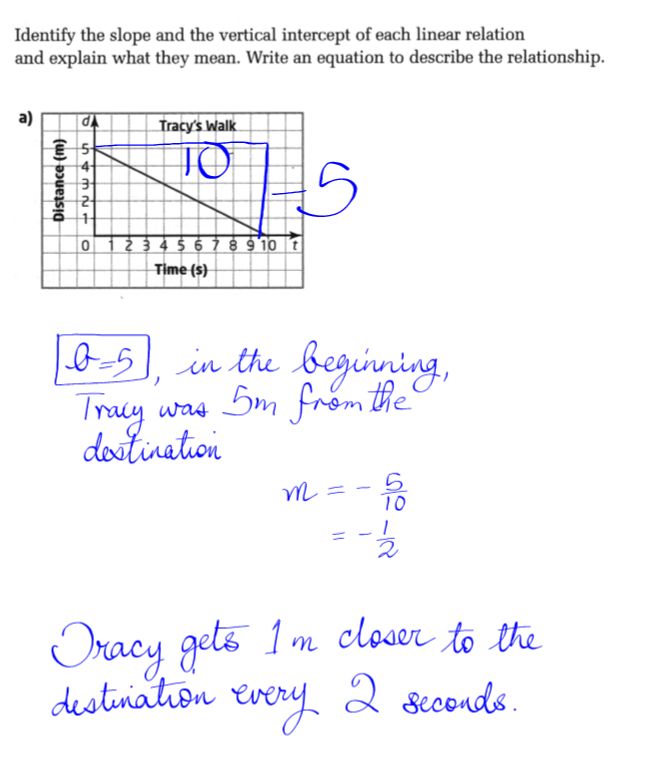 Identify the slope and the vertical intercept of each linear relation
and explain what they mean. Write an equation to describe the relationship.
a)
d
Tracy's Walk
10
-5
Distance (m)
5
4
3
2
1
0 1 2 3 4 5 6 7 8 9 10 t
Time (s)
b=5, in the beginning,
Tracy was 5m from the
destination
m = - 5/10
= - 1/2
Tracy gets 1m closer to the
destination every 2 seconds.